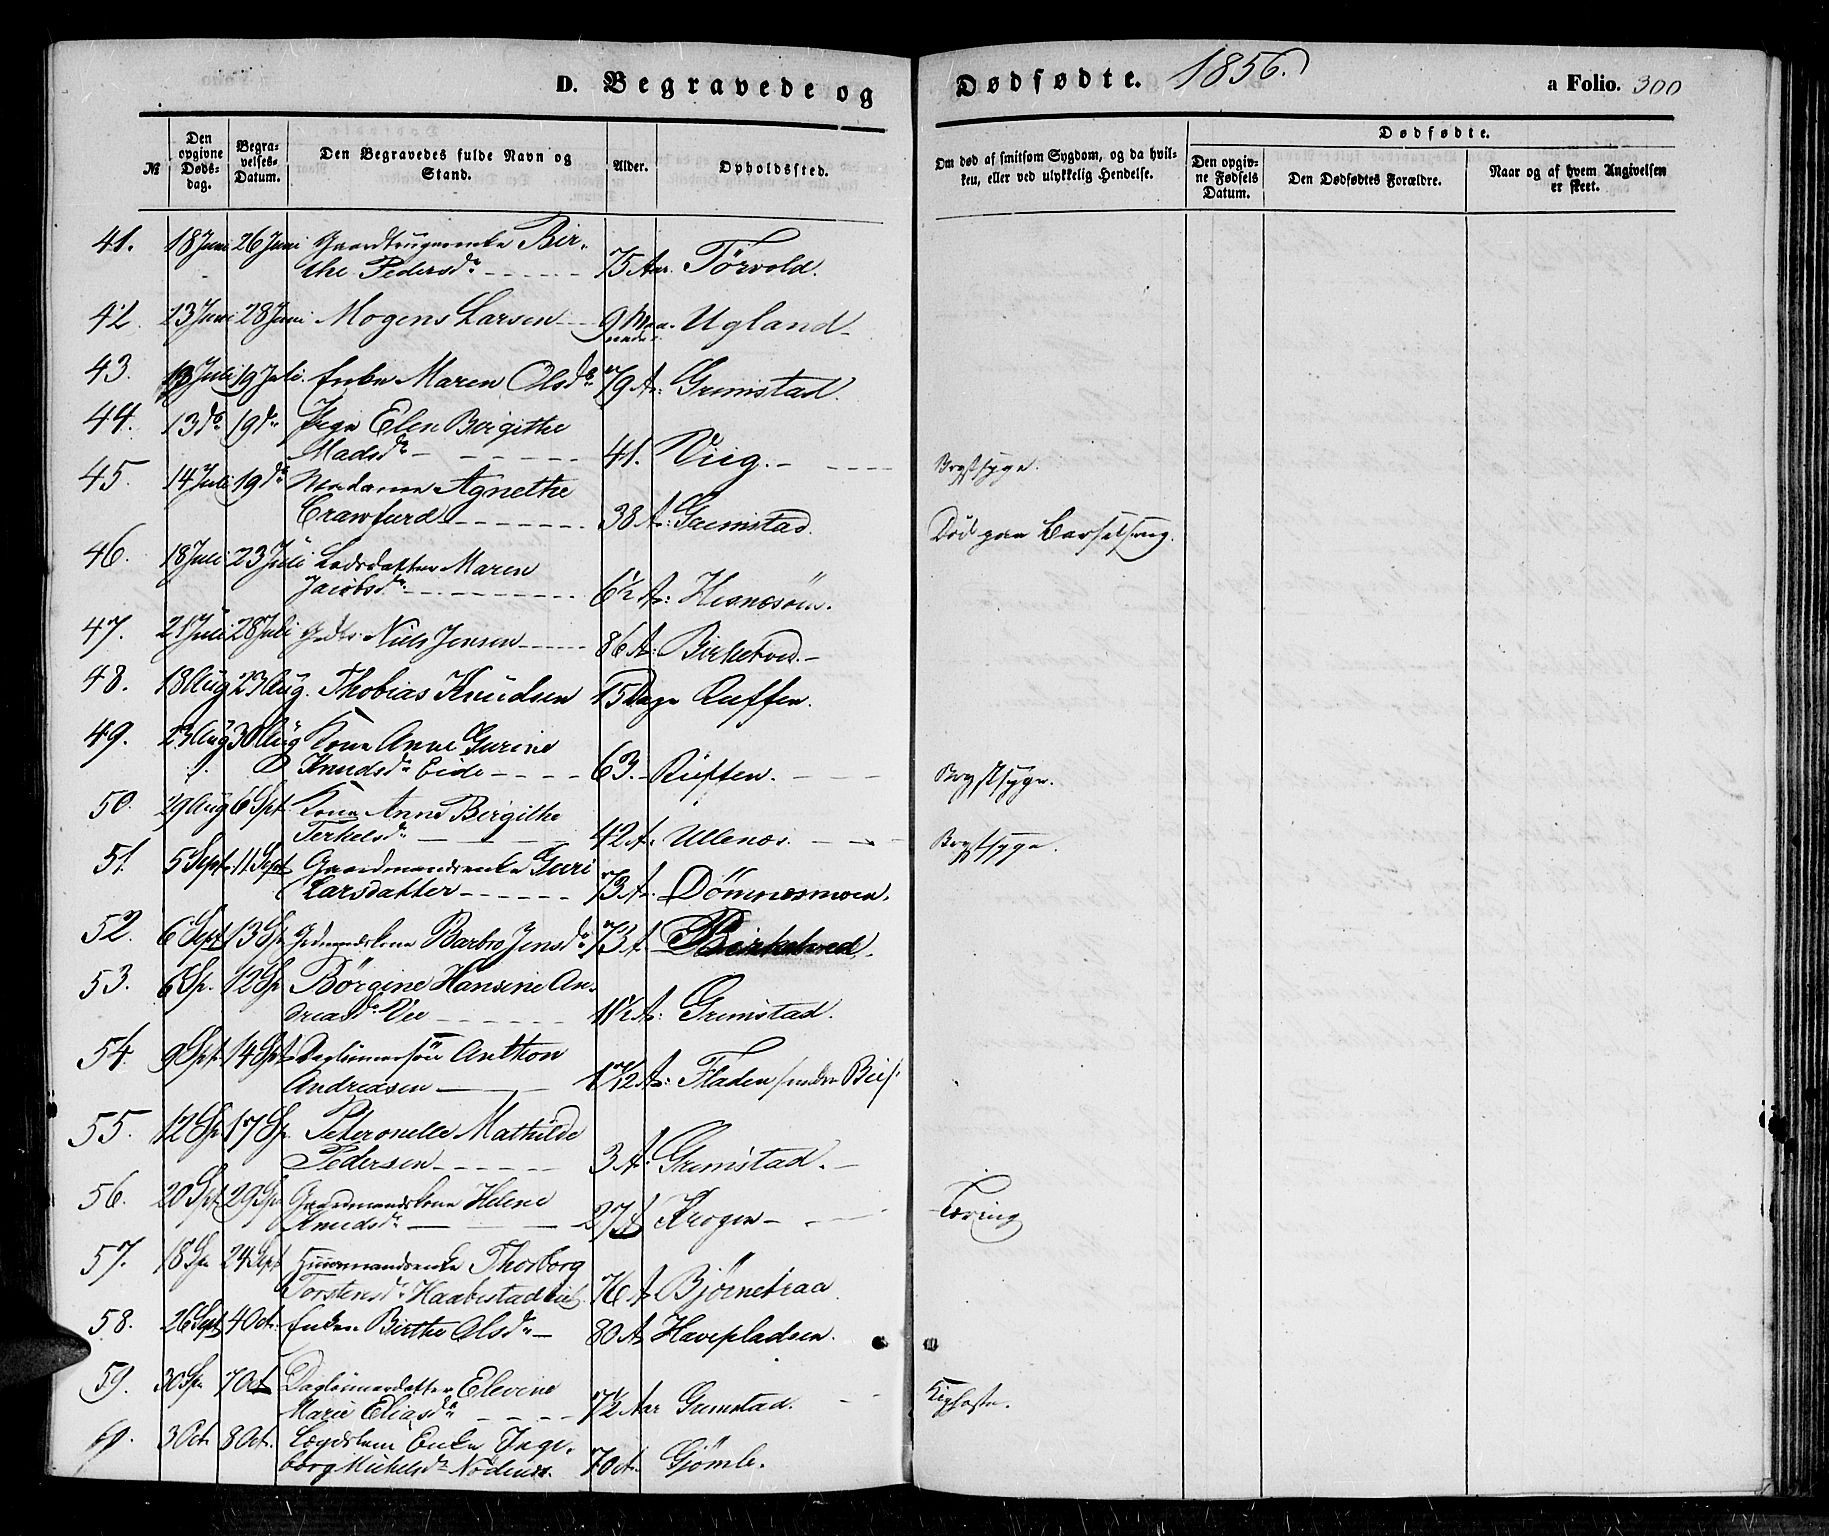 D. Begravede og
Dødfødte. 1856. a Folio. 300
№
Den opgivne Dødsdag.
Begravelses-Datum.
Den Begravedes fulde Navn og Stand.
Alder.
Opholdssted.
Om død af smitsom Sygdom, og da hvilken, eller ved ulykkelig Hendelse.
Dødfødte.
Den opgivne Fødsels Datum.
Den Dødfødtes Forældre.
Naar og af hvem Angivelsen er skeet.
41. 18 Juni 26 Juni Bir-
the Pedersdr 75 Aar. Törvold.
42. 13 Juni 28 Juni Mogens Larsen 9 Maa- Ugland
neder
43. 13 Juli 19 Juli. Enke Maren Olsdr 79 A: Grimstad.
44. 13 do 19 do Pige Elen Birgithe
Madsdr 41. Viig. Brystsyge.
45. 14 Juli 19 do Madame Agnethe
Crawfurd 38 A: Grimstad. Död paa Barselseng.
46. 18 Juli 23 Juli Lodsdatter Maren
Jacobsdr 6½ A: Hesnesöen.
47. 21 Juli 28 Juli Niels Jensen 86 A: Birketved.
48. 18 Aug 23 Aug. Thobias Knudsen 15 Dage Rüffen.
49. 23 Aug 30 Aug Kone Anne Gurine
Knudsdr Eide 63. Rüffen. Brystsyge.
50. 29 Aug 6 Spt. Kone Anne Birgithe
Terkelsdr 42 A. Ullenes. Brystsyge.
51. 5 Sept. 11 Sept Gaardmandsenke Guri
Larsdatter 73 A. Dömmesmoen.
52. 6 Sept 13 Sp. Barbro Jensdr 73 A. Birketved.
53. 6 Sp. 12 Sp Börgine Hansine An-
dreasdr Vee 1½ A: Grimstad.
54. 9 Spt. 14 Spt. Daglönnersön Anthon
Andreasen 1 7/12 A: Fladen /under Bie/
55. 12 Sp 17 Sp. Peteronelle Mathilde
Pedersen 3 A: Grimstad.
56. 20 Spt. 29 Sp. Gaardmandskone Helene
Knudsdr 27 A Krogen Tæring
57. 18 Sp. 24 Sept Huusmandsenke Thorborg
Torstensdr Haabestad 76 A Bjørnetraa
58. 26 Spt 4 Oct. Enken Birthe Olsdr 80 A. Havepladsen.
59. 30 Sp. 7 Oct. Daglönnerdatter Elevine
Marie Eliasdr 7½ Aar Grimstad. Kighoste.
60. 3 Oct. 8 Oct. Lægdslem Enke Inge-
borg Mickelsdr Nödenes. 70 A. Gjömle.